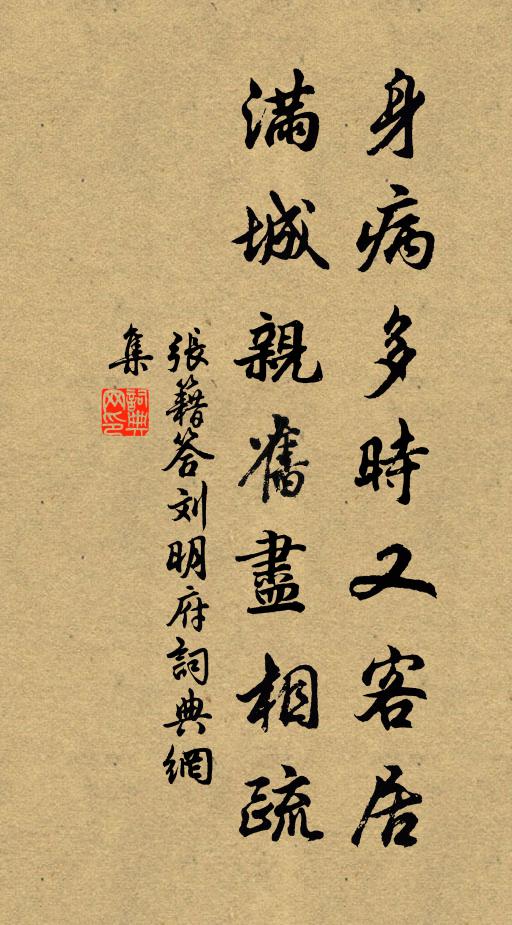 身病多時又客居
滿城親舊盡相疏
張籍答刘明府詞典網
集
詞典
网印